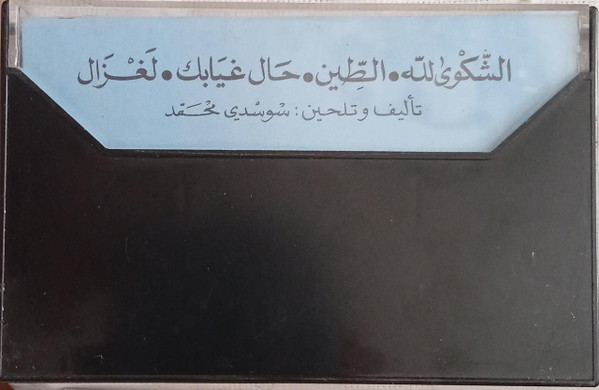 الشَّكْوىٰ للّه • الطِّين • حَال غيَابك • لَغْزَال
تأليف وتلحين : سُوسْدي محَمّد